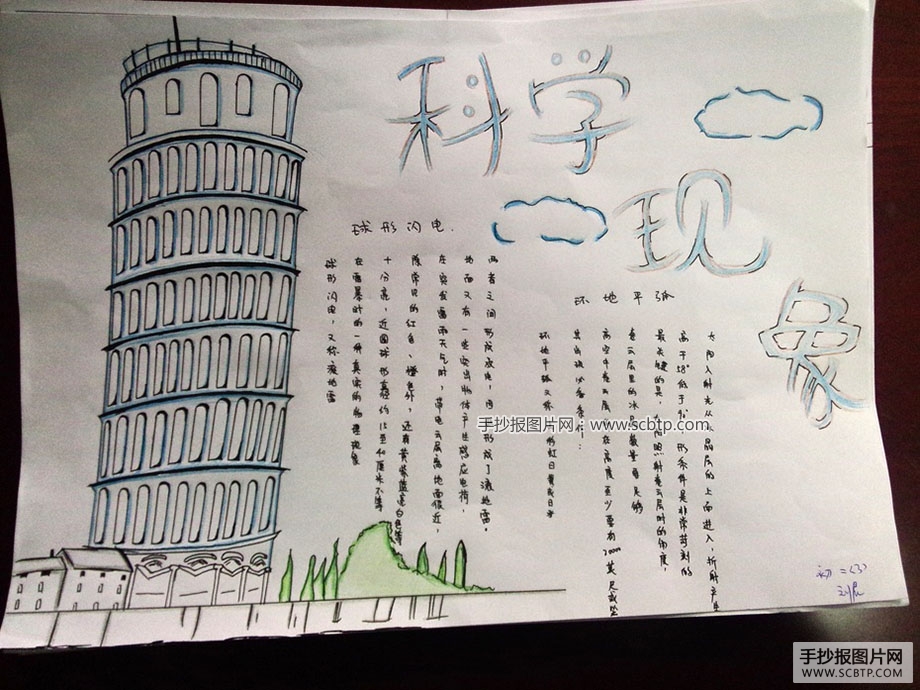 科学
现
象
球形闪电.
球形闪电，又称滚地雷
在雷暴时的一种真实的物理现象
十分亮，近圆球形直径约15至40厘米不等
除常见的红色、橙色外，还有黄紫蓝亮白色等
在突发雷雨天气时，带电云层离地面很近，
地面又有一些突出物体产生感应电荷，
两者之间形成放电，形成了滚地雷。
环地平弧
环地平弧又称 彩虹日晕或日
其出现必备条件：
高空卷云层 在高度至少要有 英尺或
卷云层里的冰晶数量要足够
最关键的是，太阳照射卷云层时的角度，
高于58°低于 形条件是非常苛刻的
太阳入射光从冰晶层的上面进入，折射产生
初二(3)
手抄报图片网：www.scbtp.com
手抄报图片网
WWW.SCBTP.COM